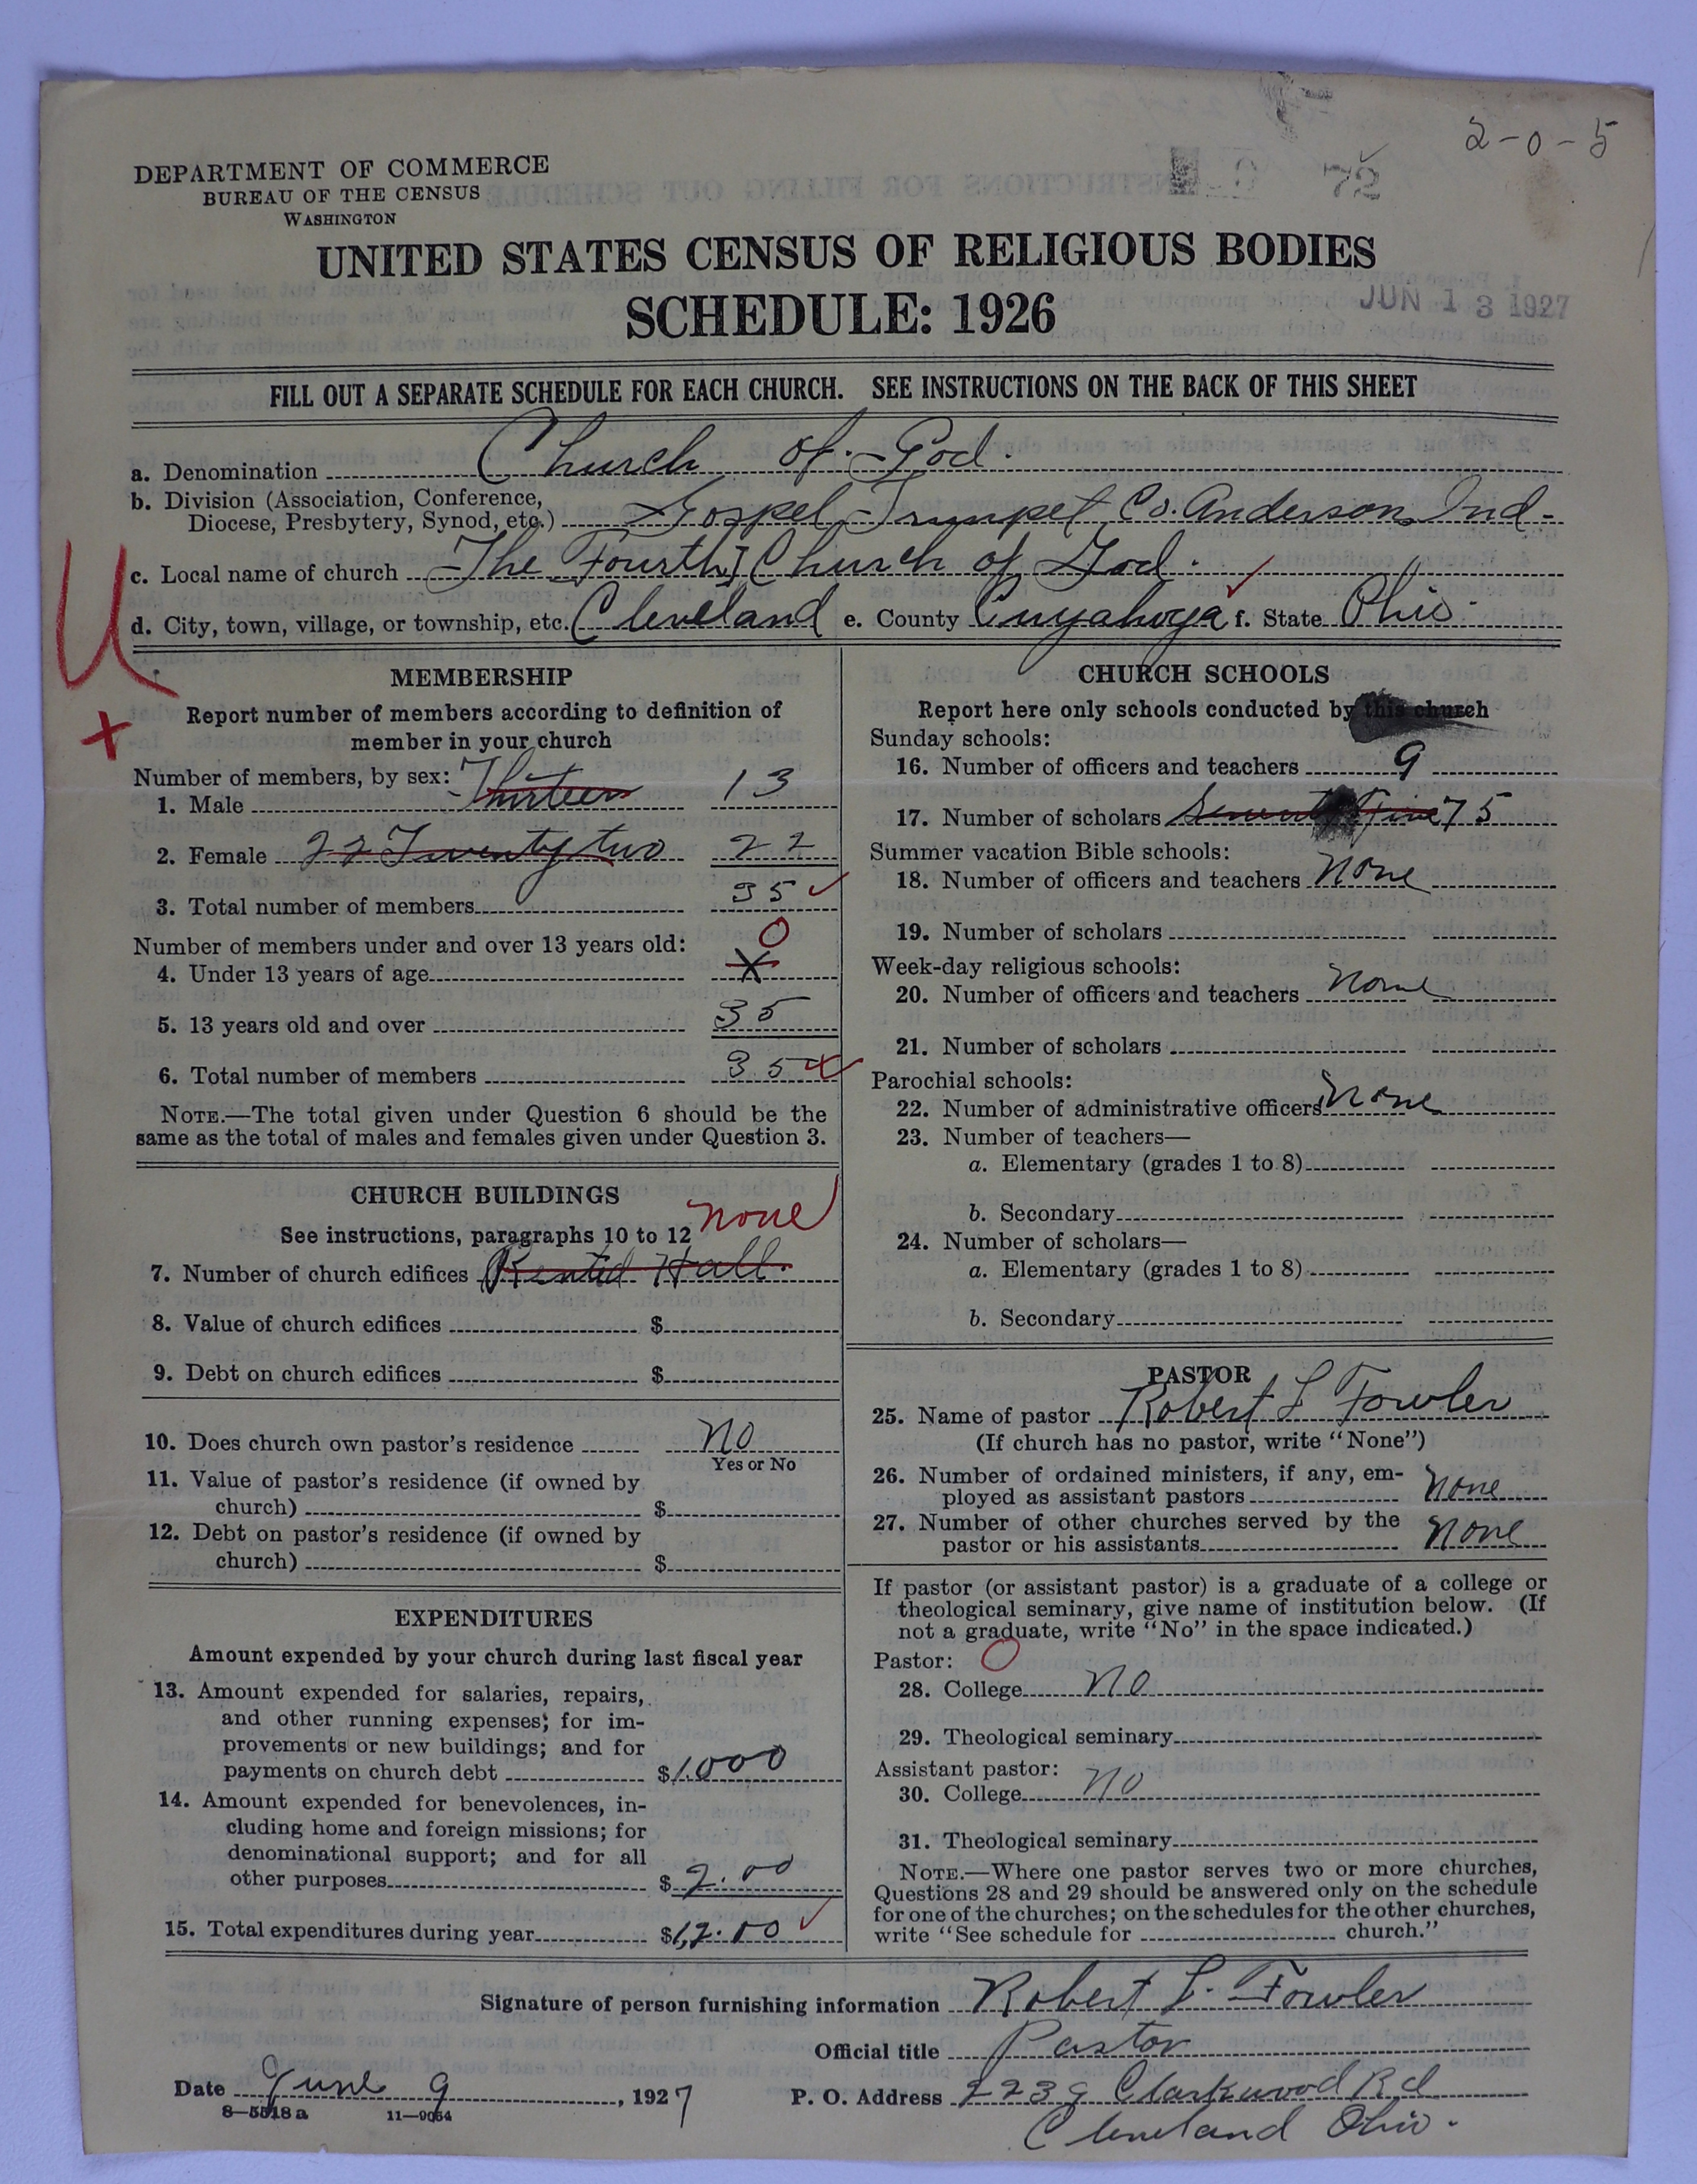 2-0-5
72
DEPARTMENT OF COMMERCE
BUREAU OF THE CENSUS
WASHINGTON
UNITED STATES CENSUS OF RELIGIOUS BODIES
SCHEDULE: 1926
JUN 13 1927
FILL OUT A SEPARATE SCHEDULE FOR EACH CHURCH. SEE INSTRUCTIONS ON THE BACK OF THIS SHEET
a. Denomination Church of God.
b. Division (Association, Conference,
Diocese, Presbytery, Synod, etc.) Gospel Trumpet Co. Anderson, Ind-
c. Local name of church The Fourth Church of God.
d. City, town, village, or township, etc. Cleveland e. County Cuyahoga f. State Ohio.
U
+
MEMBERSHIP
Report number of members according to definition of
member in your church
Number of members, by sex:
1. Male Thirteen 13
2. Female 22 Twenty two 22
3. Total number of members 35
Number of members under and over 13 years old:
0
4. Under 13 years of age X
5. 13 years old and over 35
6. Total number of members 35
NOTE.—The total given under Question 6 should be the
same as the total of males and females given under Question 3.
CHURCH BUILDINGS
See instructions, paragraphs 10 to 12 none
7. Number of church edifices Rented Hall.
8. Value of church edifices $
9. Debt on church edifices $
10. Does church own pastor's residence No
Yes or No
11. Value of pastor's residence (if owned by
church) $
12. Debt on pastor's residence (if owned by
church) $
EXPENDITURES
Amount expended by your church during last fiscal year
13. Amount expended for salaries, repairs,
and other running expenses; for im-
provements or new buildings; and for
payments on church debt $
14. Amount expended for benevolences, in-
cluding home and foreign missions; for
denominational support; and for all
other purposes $ 2.00
15. Total expenditures during year $
CHURCH SCHOOLS
Report here only schools conducted by this church
Sunday schools:
16. Number of officers and teachers 9
17. Number of scholars Seventy Five 75
Summer vacation Bible schools:
18. Number of officers and teachers None
19. Number of scholars
Week-day religious schools:
20. Number of officers and teachers None
21. Number of scholars
Parochial schools:
22. Number of administrative officers None
23. Number of teachers—
a. Elementary (grades 1 to 8)
b. Secondary
24. Number of scholars—
a. Elementary (grades 1 to 8)
b. Secondary
PASTOR
25. Name of pastor Robert L Fowler
(If church has no pastor, write "None")
26. Number of ordained ministers, if any, em-
ployed as assistant pastors None
27. Number of other churches served by the
pastor or his assistants None
If pastor (or assistant pastor) is a graduate of a college or
theological seminary, give name of institution below. (If
not a graduate, write "No" in the space indicated.)
Pastor: 0
28. College No
29. Theological seminary
Assistant pastor:
30. College No
31. Theological seminary
NOTE.—Where one pastor serves two or more churches,
Questions 28 and 29 should be answered only on the schedule
for one of the churches; on the schedules for the other churches,
write "See schedule for church."
Signature of person furnishing information Robert L. Fowler
Official title Pastor
Date June 9, 1927 P. O. Address 2239 Clarkwood Rd
8—5518a 11—9064
Cleveland Ohio.